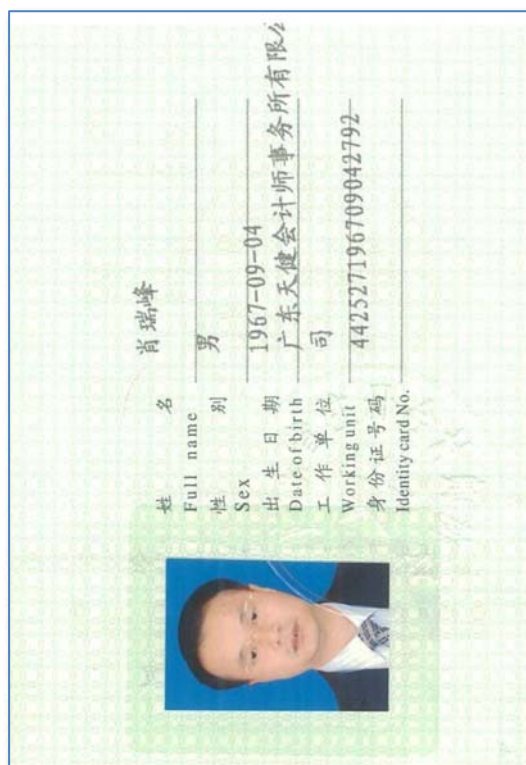 姓 名 肖瑞峰
Full name
性 别 男
Sex
出 生 日 期 1967-09-04
Date of birth
工 作 单 位 广东天健会计师事务所有限公
Working unit 司
身份证号码 442527196709042792
Identity card No.